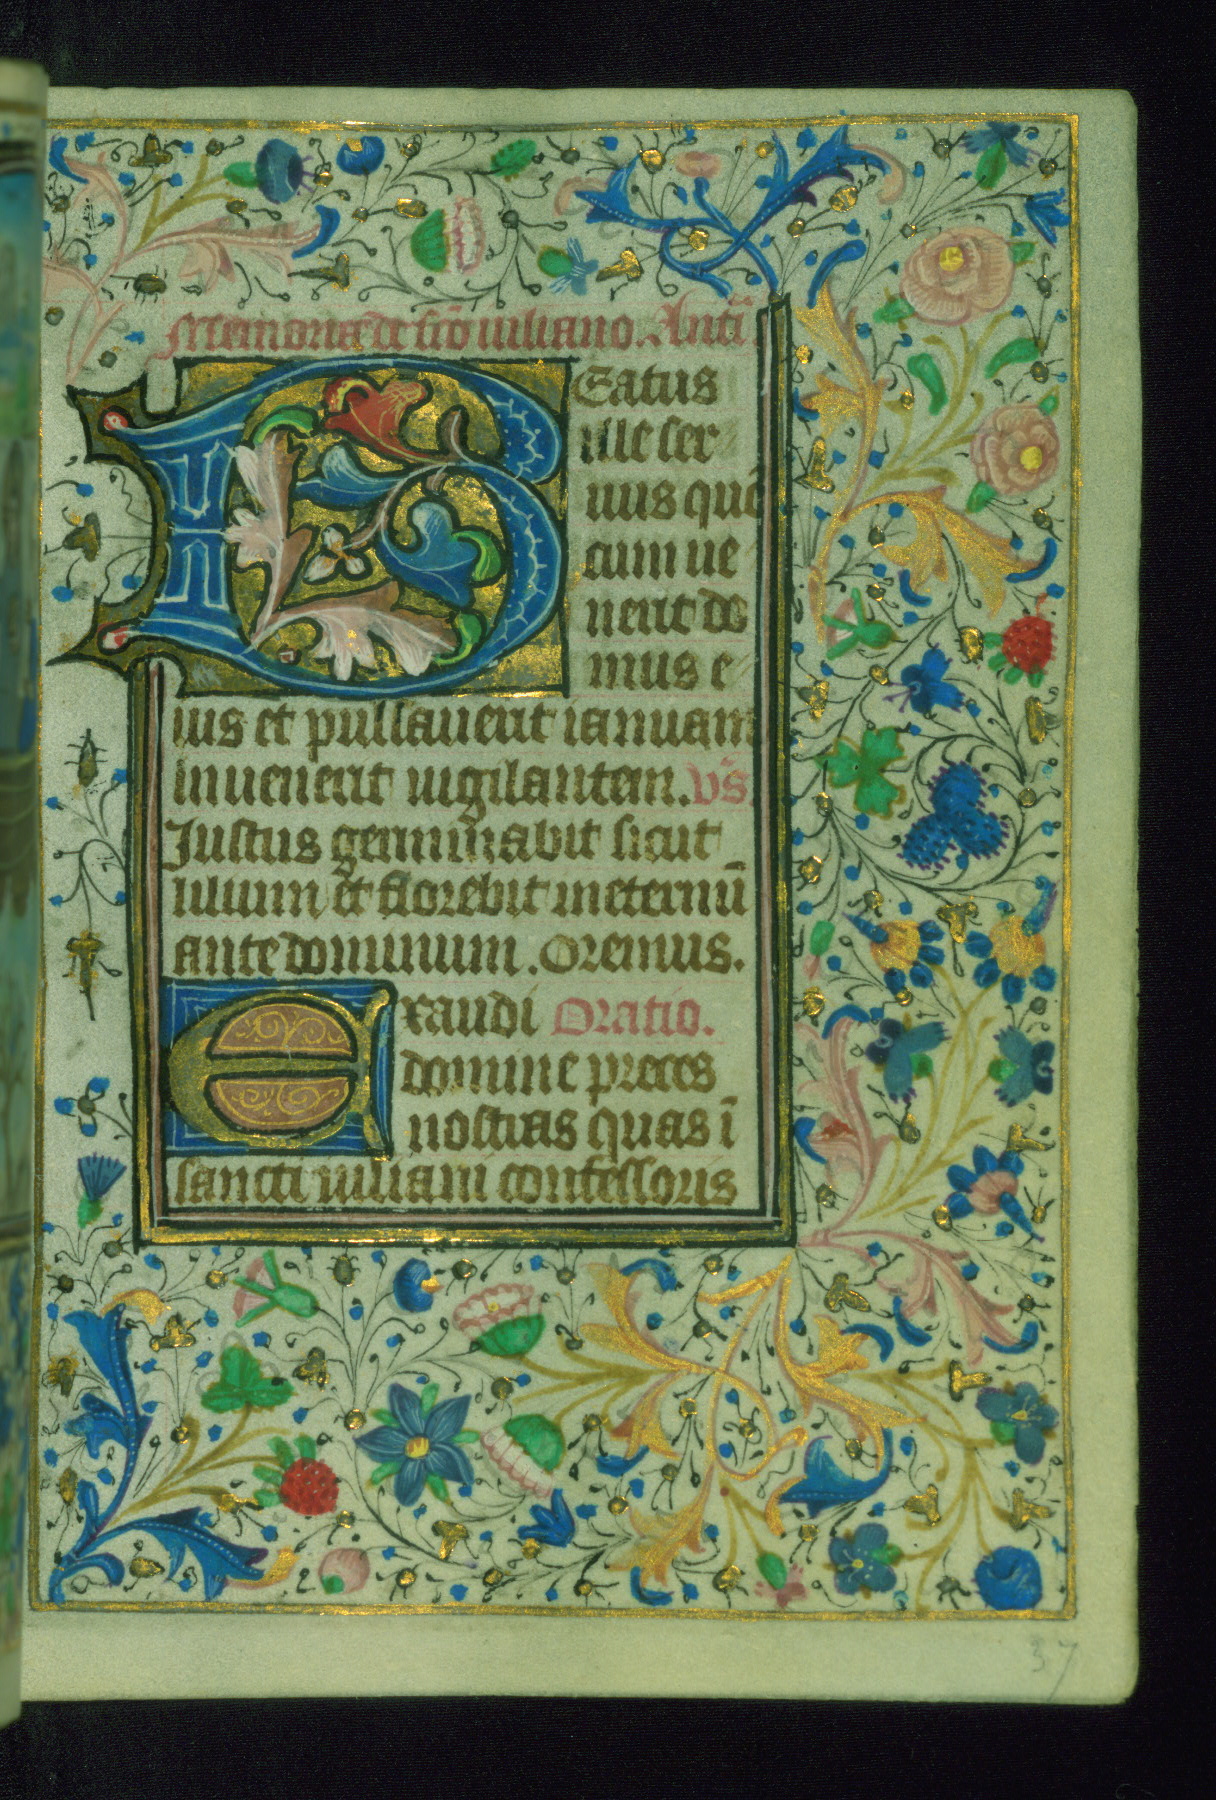 Memoria de sc̄o iuliano. Antī.
Beatus
ille ser
uus quē
cum ue
nerit do
mus e
ius et pulsauerit ianuam
inuenerit uigilantem. v̄s
Justus germinabit sicut
lilium et florebit in eternū
ante dominum. Oremus.
Exaudi Oratio.
domine preces
nostras quas ī
sancti iuliani confessoris
37